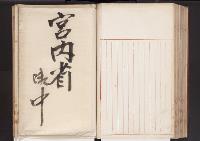 宮内省
御中